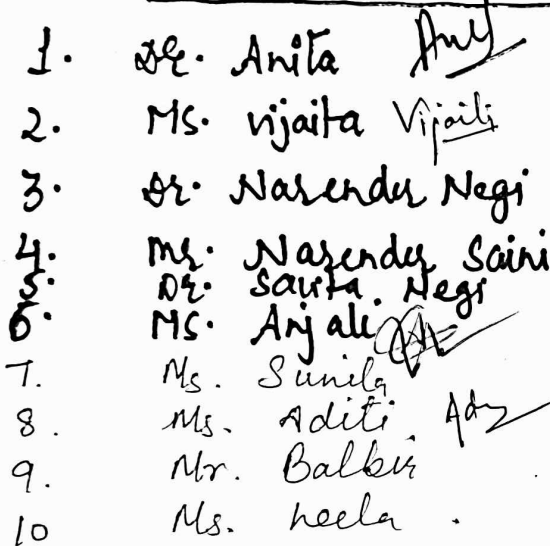 1. Dr. Anita
2. Ms. vijaita Vijaita
3. Dr. Narender Negi
4. Mr. Narender Saini
5. Dr. Savita Negi
6. Ms. Anjali
7. Ms. Sunila
8. Ms. Aditi
9. Mr. Balbir
10 Ms. neela